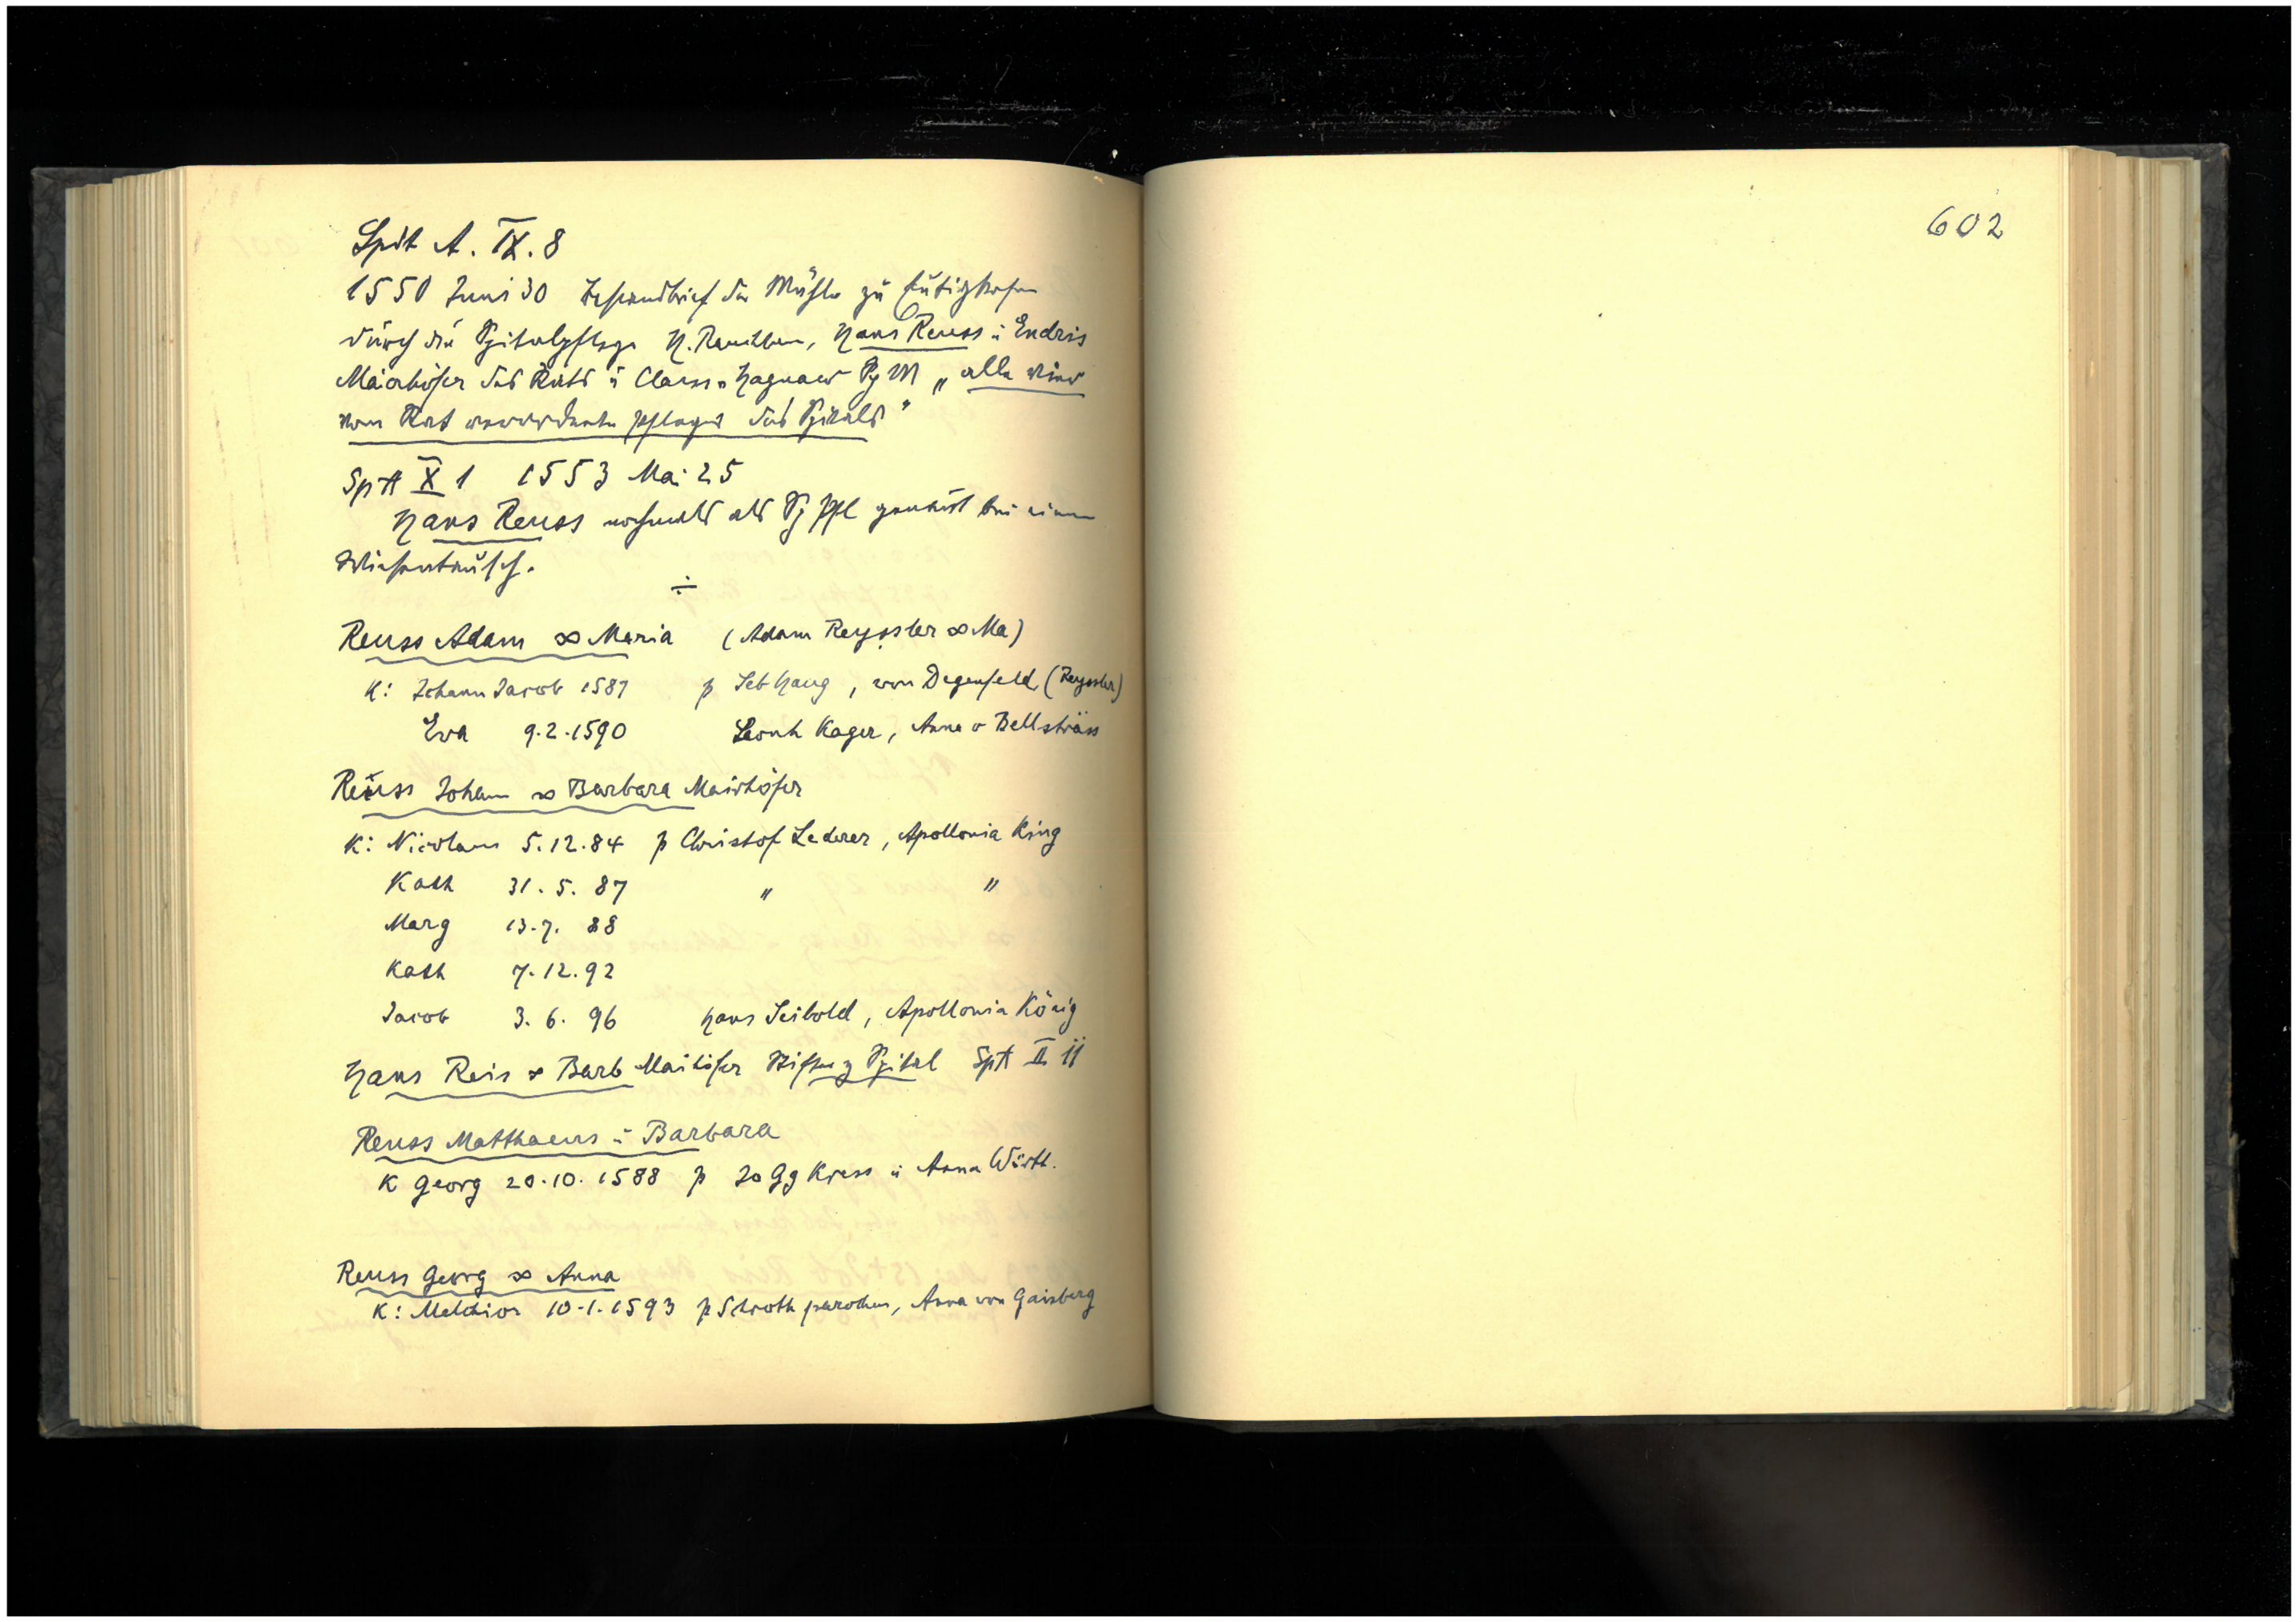 Spit A. IX. 8
1550 Juni 30 Bestandbrief der Mühle zu
durch die Spitalpflege H. Rauchbein, Hans Reuss ü Endris
Maierhöfer des Rats ü Claus v Hagnaw Sp M „alle vier
vom Rat verordnete Pfleger des Spitals"
SpA X 1 1553 Mai 25
Hans Reuss nochmals als Sp Pfl genannt bei einem
Wiesentausch.
÷
Reuss Adam ∞ Maria (Adam Reyssler ∞ Ma)
K: Johann Jacob 1587 p Seb Haug, von Degenfeld (Reyssler)
Eva 9.2.1590 Leonh Kager, Anna v
Reuss Johann ∞ Barbara Mairhöfer
K: Nicolaus 5.12.84 p Christof Lederer, Apollonia King
Kath 31. 5. 87 " "
Marg 13.7. 88
Kath 7.12.92
Jacob 3. 6. 96 Hans Seibold, Apollonia König
Hans Reis ∞ Barb Maihöfer Stiften z Spital SpA II 11
Reuss Matthaeus ü Barbara
K Georg 20.10.1588 p Jo Gg Kress ü Anna Wörtt.
Reuss Georg ∞ Anna
K: Melchior 10.1.1593 p Schroth parochus, Anna von Gaisberg
602